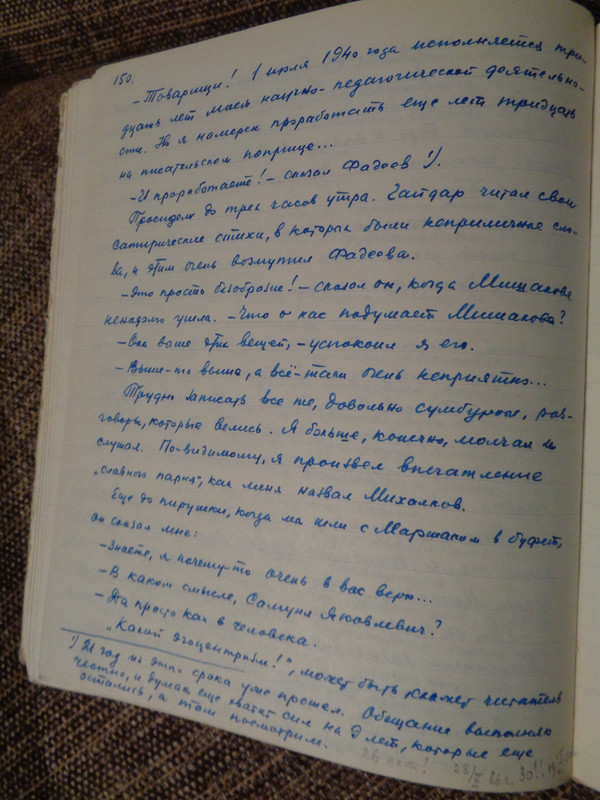 150.
— Товарищи! 1 июля 1940 года исполняется три-
дцать лет моей научно-педагогической деятельно-
сти. Но я намерен проработать еще лет тридцать
на писательском поприще...
— И проработаете! — сказал Фадеев ¹).
Просидели до трех часов утра. Гайдар читал свои
сатирические стихи, в которых были неприличные сло-
ва, и этим очень возмутил Фадеева.
— Это просто безобразие! — сказал он, когда Мишакова
ненадолго ушла. — Что о нас подумает Мишакова?
— Она выше этих вещей, — успокоил я его.
— Выше-то выше, а всё-таки очень неприятно...
Трудно записать все те, довольно сумбурные, раз-
говоры, которые велись. Я больше, конечно, молчал и
слушал. По-видимому, я произвел впечатление
„славного парня", как меня назвал Михалков.
Еще до пирушки, когда мы шли с Маршаком в буфет,
он сказал мне:
— Знаете, я почему-то очень в вас верю...
— В каком смысле, Самуил Яковлевич?
— Да просто как в человека.
„Какой эгоцентризм!", может быть, скажет читатель
¹) 21 год из этого срока уже прошел. Обещание выполняю
честно, и думаю, еще хватит сил на 9 лет, которые еще
остались, а там посмотрим.
26 лет! 28/I 66 г. 30!!